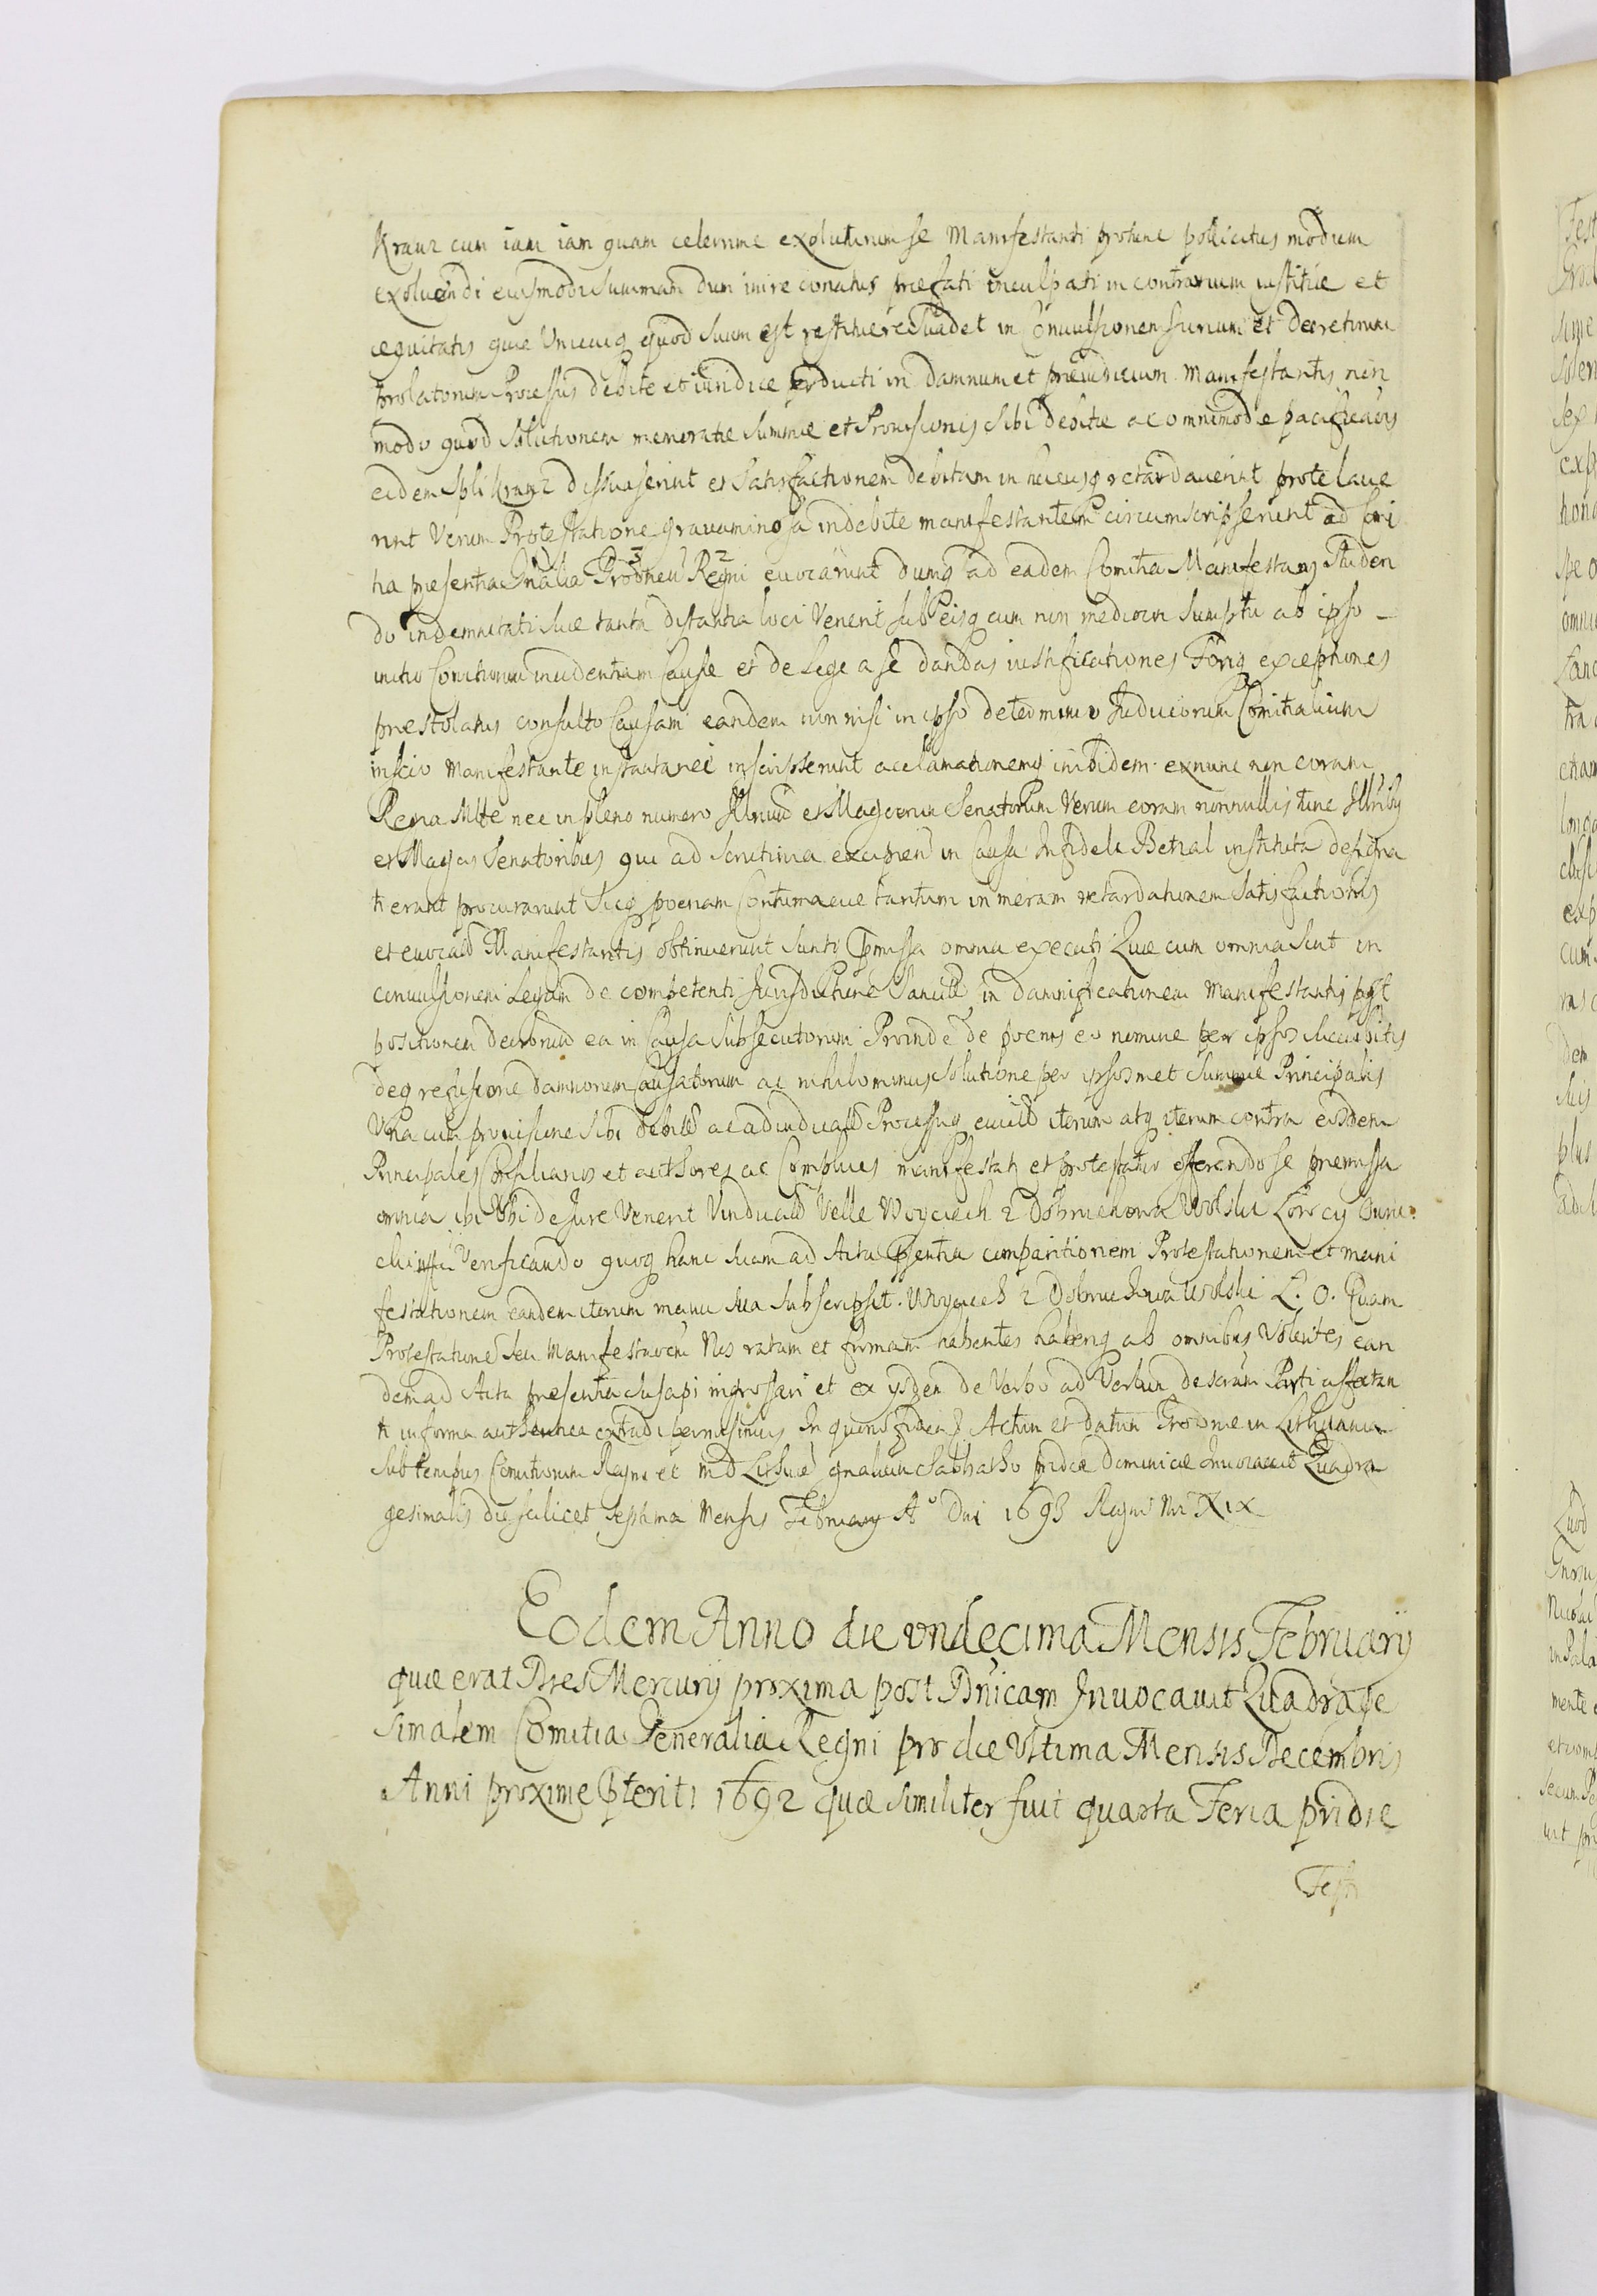 Krauz cum iam iam quam celerrime exoluturum se Manifestanti protunc pollicitus modum
exoluendi eiusmodi Summam dum inire conatus præfati inculpati in contrarium iustitiæ et
æquitatis quæ Unicuiq quod suum est restituere Suadet in Conuulsionem Iurium et decretorum
prolatorum Processus debite et iuridice perducti in damnum et præiudicium Manifestantis non
modo quod Solutionem memoratæ Summæ et Prouisionis sibi debitæ ac omnimode pacificatus
eidem Spli Krauz dissuaserint et Satisfactionem debitam in hucusq retardauerint protelaue
rint Verum Protestatione grauaminosa indebite manifestantem circumscripserunt ad Comi
tia præsentia Gnalia Grodnen Regni euocarunt dumq ad eadem Comitia Manifestans Studen
do indemnitati suæ tanta distantia loci Venerit Sub eisq cum non mediocri Sumptu ab ipso
initio Comitiorum incidentiam Causæ et de Lege a se dandas iustificationes Foriq exceptiones
præstolatus consulto Causam eandem non nisi in ipso determino Iudiciorum Comitialium
inscio Manifestante instantanei inscripserunt acclamationemq inibidem exnunc non coram
Regia Mtte nec in pleno numero Illrium et Magcorum Senatorum Verum coram nonnullis tunc Illribus
et Magcis Senatoribus qui ad scrutinia excipien in Causa Infidelis Betsal instituta designa
ti erant procurarunt Sicq poenam Contumaciæ tantum in meram retardationem Satisfactionis
et euocatio Manifestantis obtinuerunt sunt præmissa omnia executi Quæ cum omnia sint in
conuulsionem Legum de competenti Iurisdictione Sancit in damnificationem Manifestantis post
positionem decretorum ea in Causa Subsecutorum Proinde de poenis eo nomine per ipsos succubitis
deq refusione damnorum causatorum ac nihilominus solutione per ipsosmet Summæ Principalis
Una cum prouisione sibi debita ac adiudicata Processuq euicta iterum atq iterum contra eosdem
Principales Consiliarios et authores ac Complices manifestatus et protestatur offerendo se præmissa
omnia ibi Ubi de Iure Venerit Vindicatur Velle Woyciech z Dobruchowa Wolski Łowczy Owru
cki Verificando quoq hanc suam ad Acta præsentia comparitionem Protestationem et mani
festationem eandem iterum manu sua Subscripsit. Woyciech z Dobruchowa Wolski Ł. O. Quam
Protestatione seu Manifestationem Nos ratam et firmam habentes haberiq ab omnibus Volentes ean
dem ad Acta præsentia Suscipi ingrossari et ex ijsdem de Verbo ad Verbum descriui Parti affectan
ti in forma authentica extradi permisimus In quorum fidem Actum et datum Grodnæ in Lithuania
Sub tempus Comitiorum Regni et M D Lithuæ gnalium Sabbatho pridie Dominicæ Inuocauit Quadra
gesimalis die scilicet Septima Mensis February Ao Dni 1693 Regni Nri XIX
Eodem Anno die undecima Mensis Februarij
quæ erat Dies Mercurij proxima post Dnicam Inuocauit Quadrage
simalem Comitia Generalia Regni pro die Ultima Mensis Decembris
Anni proxime præteriti 1692 quæ similiter fuit quarta Feria pridie
Festi